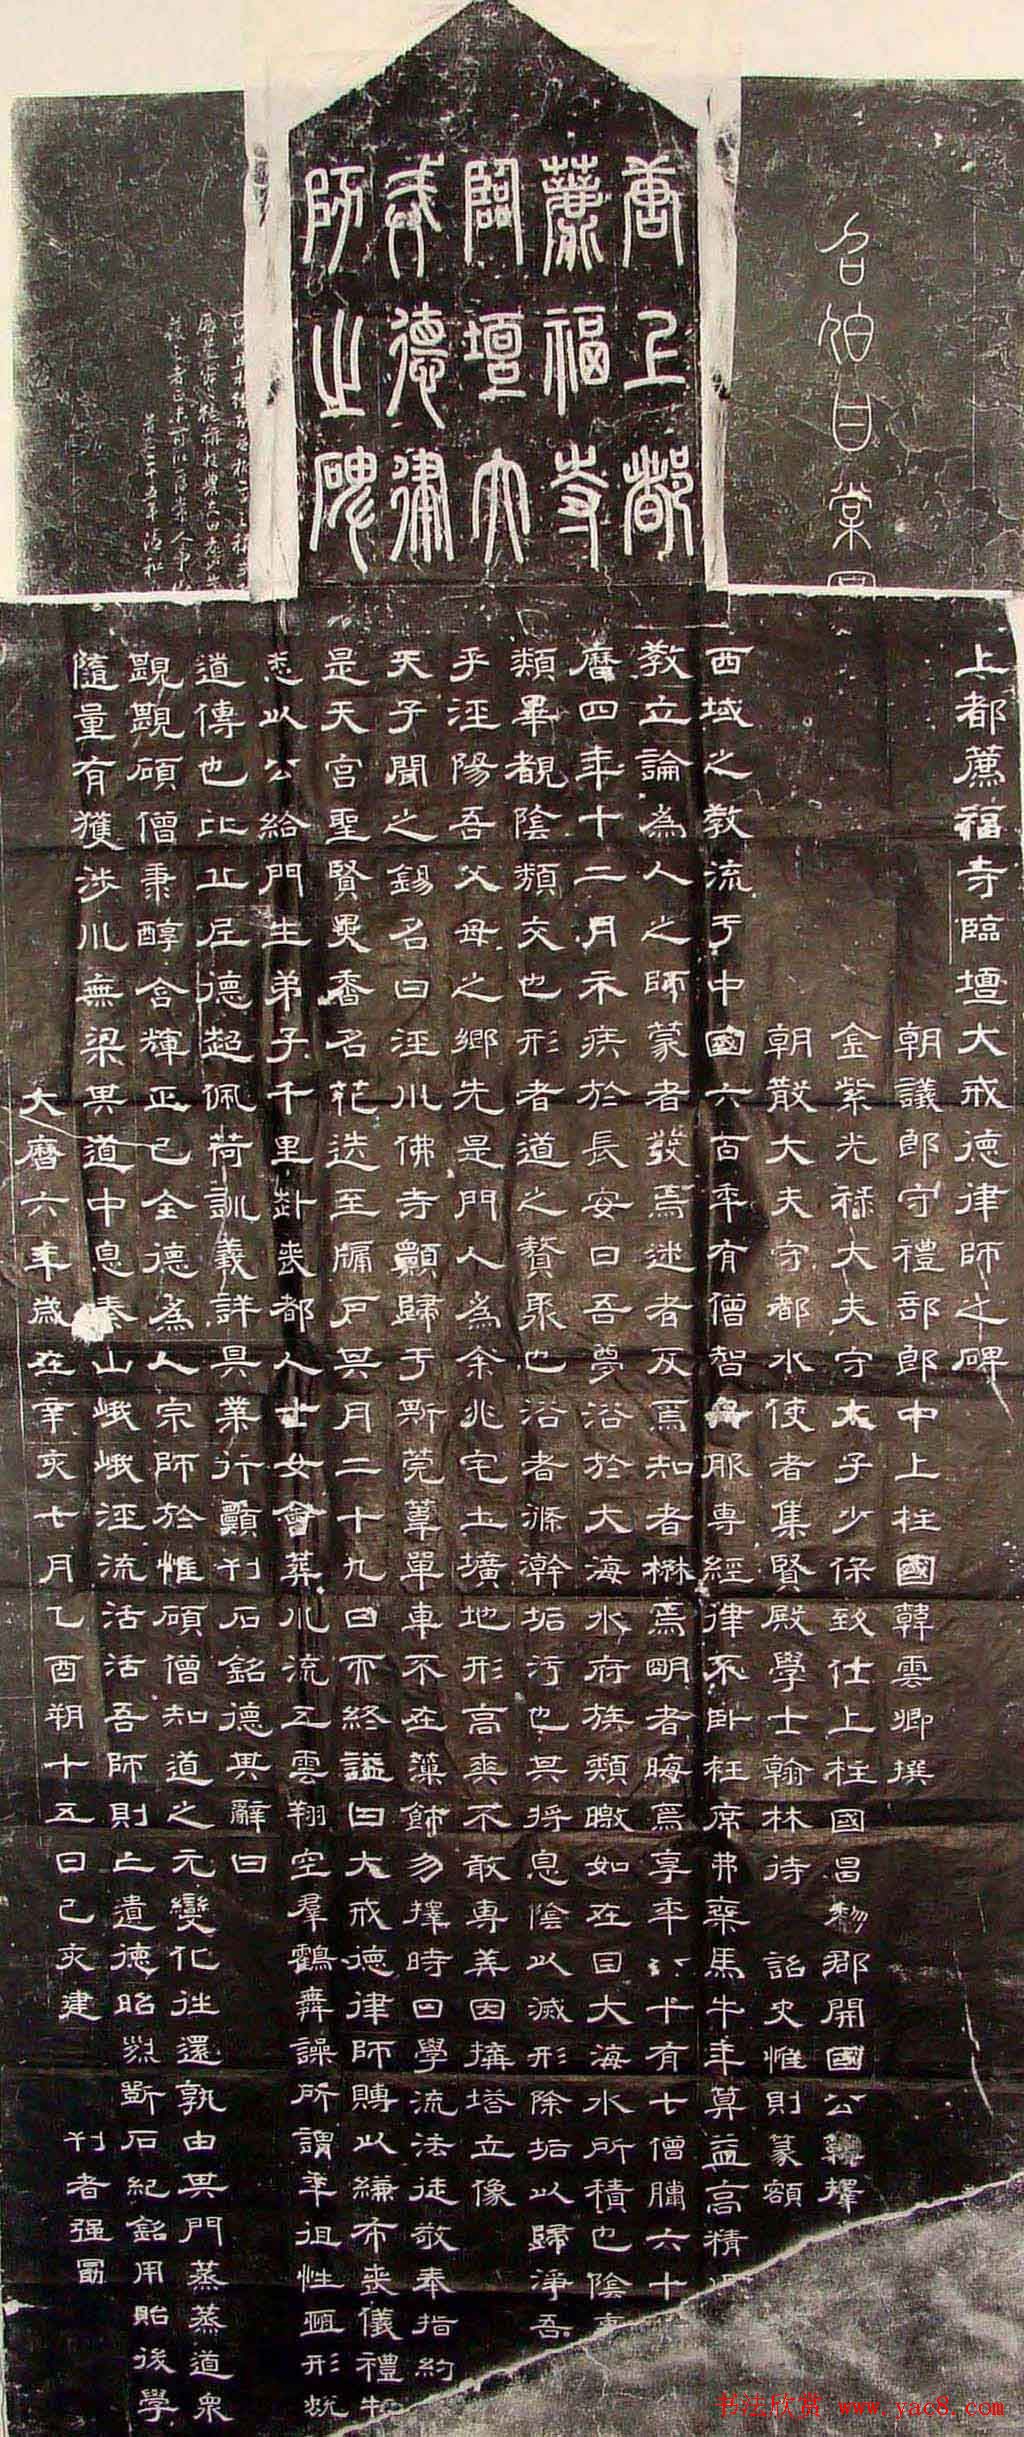 唐上都
薦福寺
臨壇大
戒德律
師之碑
召伯甘棠
上都薦福寺臨壇大戒德律師之碑
朝議郎守禮部郎中上柱國韓雲卿撰
金紫光祿大夫守太子少保致仕上柱國昌黎郡開國公韓擇
朝散大夫守都水使者集賢殿學士翰林待詔史惟則篆額
西域之教流于中國六百年有僧智服專經律不卧枉席弗乘馬牛年算益高精
教立論為人之師蒙者發焉迷者反焉知者楙焉明者晦焉享年八十有七僧臘六十
曆四年十二月示疾於長安曰吾夢浴於大海水府族類瞰如在目大海水所積也陰
類畢覩陰類交也形者道之贅聚也浴者滌澣垢汙也其將息陰以滅形除垢以歸淨吾
乎涇陽吾父母之鄉先是門人為余兆宅土壙地形高爽不敢專美因搆塔立像
天子聞之錫名曰涇川佛寺願歸于斯菀葦單車不在藻飾勿擇時日學流法徒敬奉指約
是天宮聖賢異香名花迭至牖戶其月二十九日而終謚曰大戒德律師賻以縑布喪儀禮物
悉以公給門生弟子千里赴喪都人士女會葬川流五雲翔空羣鶴舞譟所謂年徂性亘形蛻
道傳也比丘尼德超佩荷訓義詳具業行願刊石銘德其辭曰
顯顯碩僧秉醇含輝正己全德為人宗師於惟碩僧知道之元變化往還孰由其門蒸蒸道衆
隨量有獲涉川無梁其道中息秦山峨峨涇流活活吾師則亡遺德昭烈斲石紀銘用貽後學
大曆六年歲在辛亥七月乙酉朔十五日己亥建
刊者強冐
书法欣赏 www.yac8.com